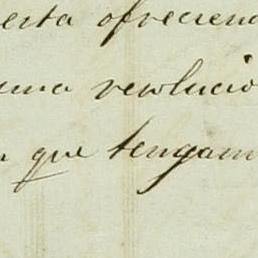 erta ofrecien
una revolucio
que tengam